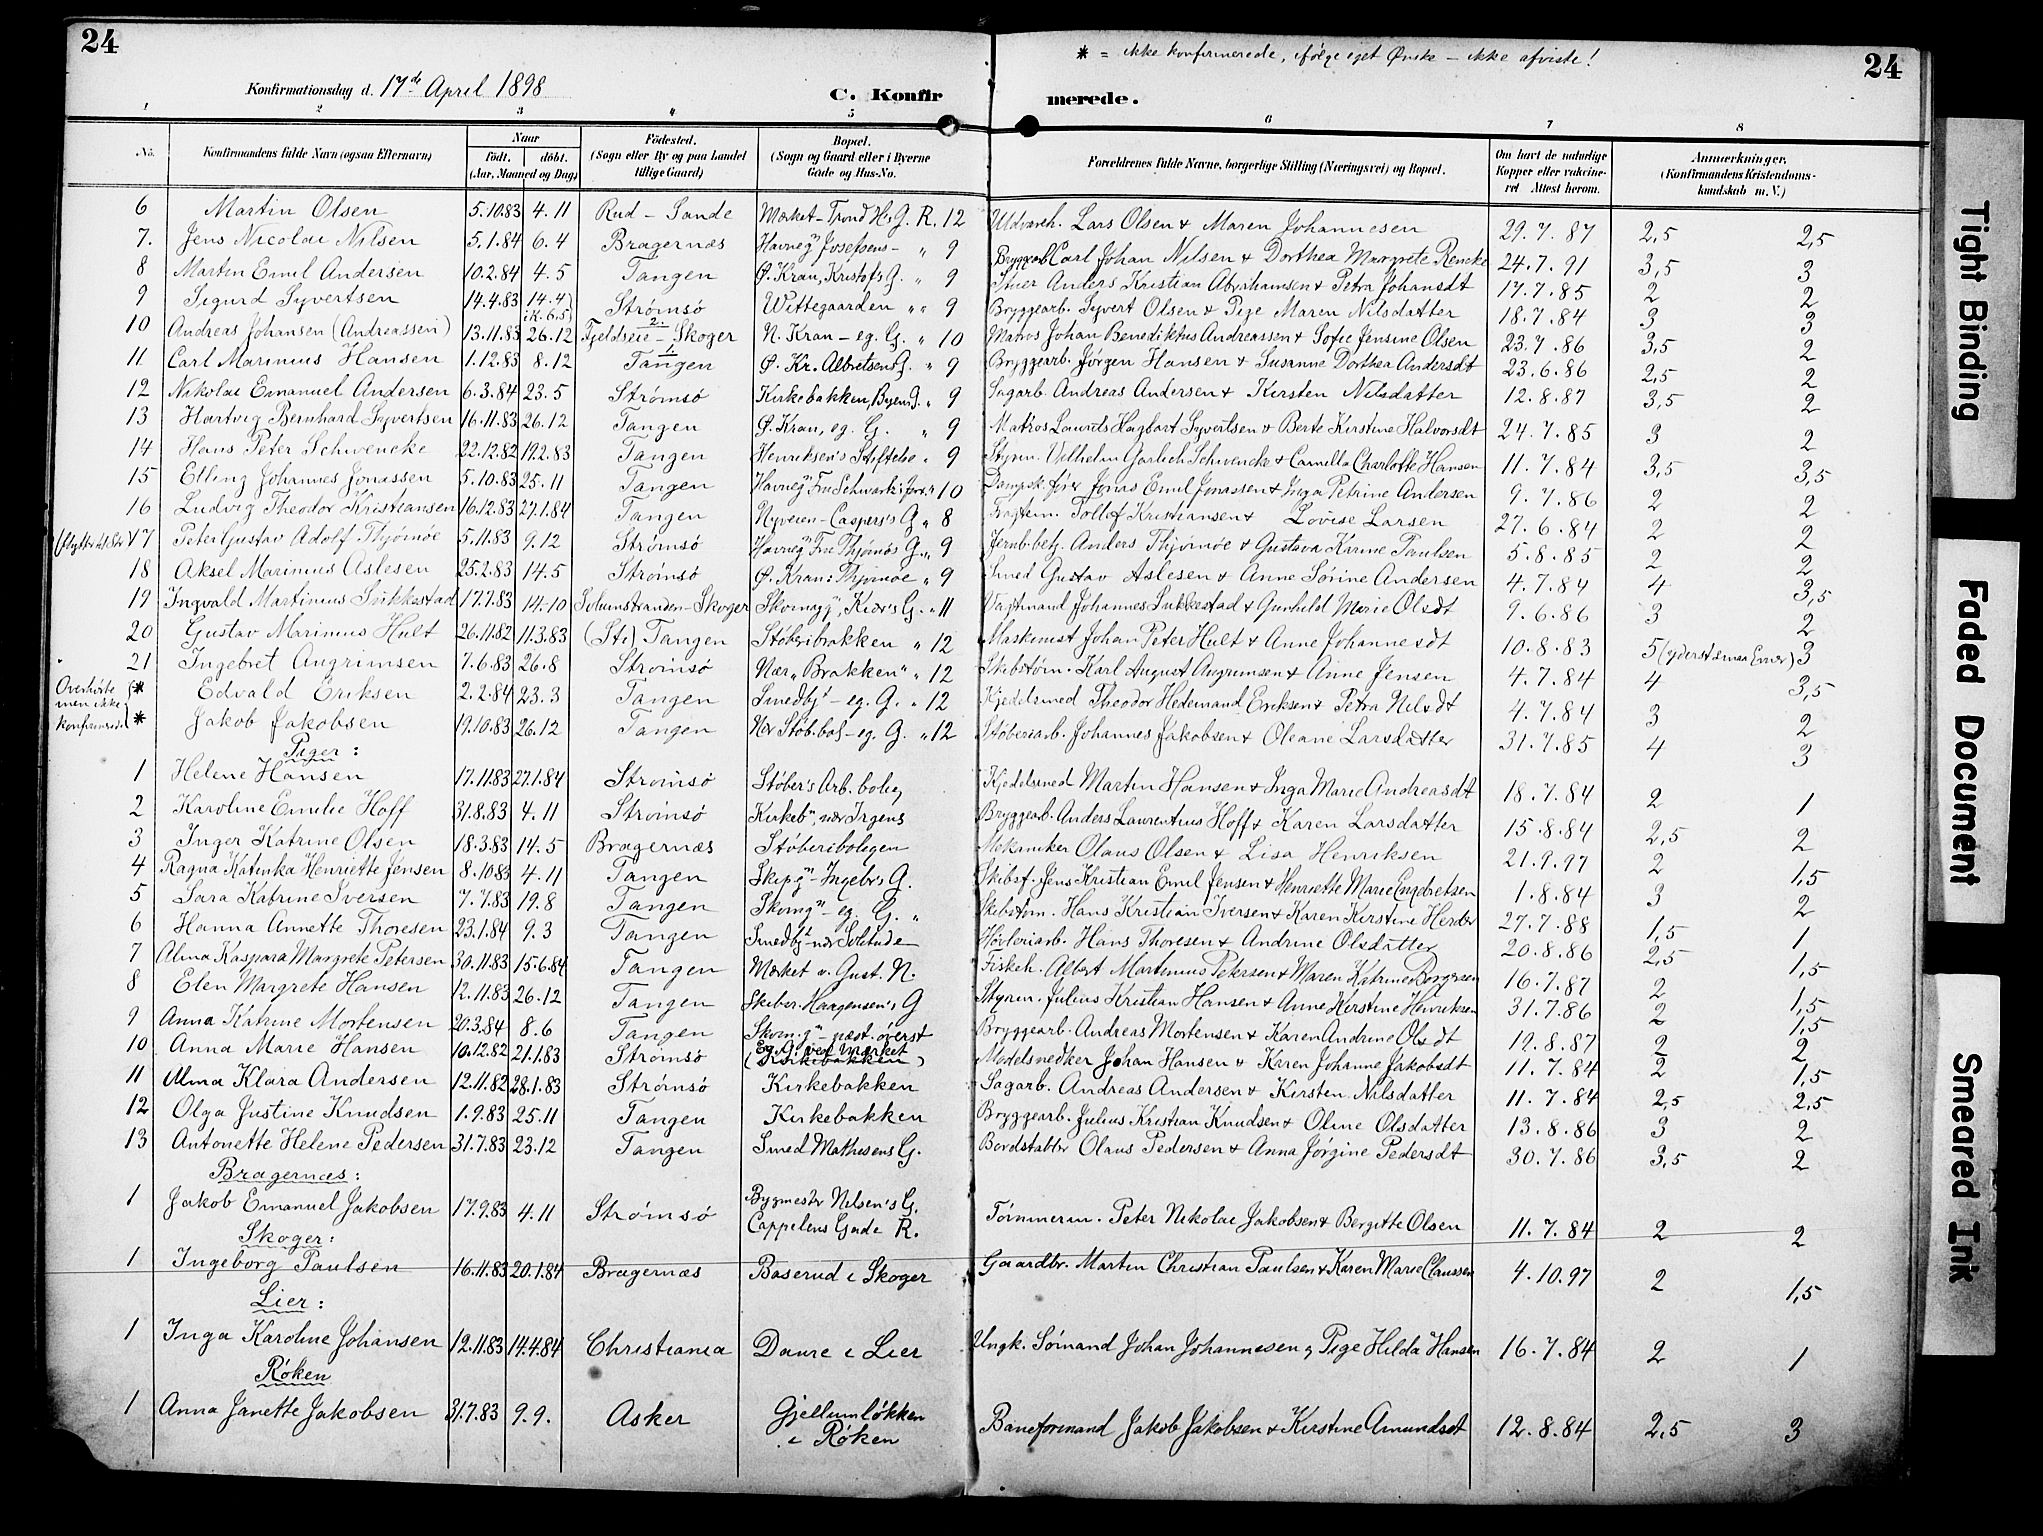 24
* = ikke konfirmerede, ifølge eget Ønske – ikke afviste!
24
Konfirmationsdag d. 17de April 1898
C. Konfirmerede.
1 2 3 4 5 6 7 8
No. Konfirmandens fulde Navn (ogsaa Efternavn) Naar født. døbt. (Aar, Maaned og Dag) Fødested. (Sogn eller By og paa Landet tillige Gaard) Bopæl. (Sogn og Gaard eller i Byerne Gade og Hus-No. Forældrenes fulde Navne, borgerlige Stilling (Næringsvei) og Bopæl. Om havt de naturlige Kopper eller vaccineret. Attest herom. Anmærkninger. (Konfirmandens Kristendomskundskab m. V.)
6 Martin Olsen 5.10.83 4.11 Rud – Sande Mærket – Trond H's G. R. 12 Lars Olsen & Maren Johannesen 29.7.87 2,5 2,5
7. Jens Nicolai Nilsen 5.1.84 6.4 Bragernæs Havneg" Josefsens – " 9 Bryggearb. Carl Johan Nilsen & Dorthea Margrete Rencke 24.7.91 3,5 3
8 Martin Emil Andersen 10.2.84 4.5 Tangen Ø. Kran, Kristofs G. " 9 Anders Kristian Abrahamsen & Petra Johansdt 17.7.85 2 2
9 Sigurd Syvertsen 14.4.83 14.4 (i K. 6.5) Strømsø Wittegaarden " " 9 Bryggearb. Syvert Olsen & Pige Maren Nilsdatter 18.7.84 3 3
10 Andreas Johansen (Andreassen) 13.11.83 26.12 Fjeldseie – Skoger N. Kran – eg. G. " 10 Matros Johan Benediktus Andreassen & Sofie Jensine Olsen 23.7.86 3,5 2
11 Carl Marinius Hansen 1.12.83 8.12 Tangen Ø. Kr. Albretsens G. " 9 Bryggearb. Jørgen Hansen & Susanne Dorthea Andersdt 23.6.86 2,5 2
12 Nikolai Emanuel Andersen 6.3.84 23.5 Strømsø Kirkebakken, Byens G. " 9 Sagarb. Andreas Andersen & Kirsten Nilsdatter 12.8.87 3,5 2
13 Hartvig Bernhard Syvertsen 16.11.83 26.12 Tangen Ø. Kran, eg. G. " 9 Matros Laurits Hagbart Syvertsen & Berte Kirstine Halvorsdt 24.7.85 3 2
14 Hans Peter Schwencke 22.12.82 19.2.83 Tangen Henriksen's Stiftelse " 9 Styrm. Vilhelm Garlich Schwencke & Camilla Charlotte Hansen 11.7.84 3,5 3,5
15 Elling Johannes Jonassen 5.10.83 25.11 Tangen Havneg" Fru Schwartz' " 10 Dampsk. fører Jonas Emil Jonassen & Inga Petrine Andersen 9.7.86 2 2
16 Ludvig Theodor Kristiansen 16.12.83 27.1.84 Tangen Nyveien – Caspers's G. " 8 Fragtem. Tollef Kristiansen & Lovise Larsen 27.6.84 2 2
17 Peter Gustav Adolf Thjømøe 5.11.83 9.12 Strømsø Havneg" Fru Thjømøs G. " 9 Jernb. betj. Anders Thjømøe & Gustava Karine Paulsen 5.8.85 2 2
18 Aksel Marinius Aslesen 25.2.83 14.5 Strømsø Ø. Kran: Thjømøe " 9 Smed Gustav Aslesen & Anne Sørine Andersen 4.7.84 4 3,5
19 Ingvald Martinius Sukkestad 17.7.83 14.10 Solumstranden – Skoger Skomagg", Kiær's G. " 11 Vagtmand Johannes Sukkestad & Gunhild Marie Olsdt 9.6.86 3 2
20 Gustav Marinius Hult 26.11.82 11.3.83 (St.) Tangen Støberibrakken " 12 Maskinist Johan Peter Hult & Anne Johannesdt 10.8.83 5 (yderst smaa Evner) 3
21 Ingebret Angrimsen 7.6.83 26.8 Strømsø Nær "Brakken" " 12 Skibstøm. Karl August Angrimsen & Anne Jensen 4.7.84 4 3,5
Overhørte men ikke konfirmerede
* Edvald Eriksen 2.2.84 23.3 Tangen Smedbj – eg. G. " 12 Kjedelsmed Theodor Hedemand Eriksen & Petra Nilsdt 4.7.84 3 2
* Jakob Jakobsen 19.10.83 26.12 Tangen Nær Støb. bol – eg. G. " 12 Støberiarb. Johannes Jakobsen & Oleane Larsdatter 31.7.85 4 3
Piger:
1 Helene Hansen 17.11.83 27.1.84 Strømsø Støber's Arb. bolig Kjedelsmed Martin Hansen & Inga Marie Andreasdt 18.7.84 2 1
2 Karoline Emilie Hoff 31.8.83 4.11 Strømsø Kirkeb", nær Irgens Bryggearb. Anders Laurentius Hoff & Karen Larsdatter 15.8.84 2,5 2
3 Inger Katrine Olsen 18.3.83 14.5 Bragernæs Støberiboligen Mekaniker Olaus Olsen & Lisa Henriksen 21.9.97 2 1,5
4 Ragna Katinka Henriette Jensen 8.10.83 4.11 Tangen Skipg" – Ingebr's G. Skibsf. Jens Kristian Emil Jensen & Henriette Marie Engbretsen 1.8.84 3 2
5 Sara Katrine Iversen 7.7.83 19.8 Tangen Skomg" – eg. G. " Skibstøm. Hans Kristian Iversen & Karen Kirstine Herder 27.7.88 1,5 1
6 Hanna Annette Thoresen 23.1.84 9.3 Tangen Smedbj – nær Solitude Høvleriarb. Hans Thoresen & Andrine Olsdatter 20.8.86 2,5 1,5
7 Alma Kaspara Margrete Petersen 30.11.83 15.6.84 Tangen Mærket v. Gust. N. Fiskeh. Albert Martinius Petersen & Maren Katrine Borgersen 16.7.87 2 1,5
8 Elen Margrete Hansen 12.11.83 26.12 Tangen Skiber. Haagensen's G Styrm. Julius Kristian Hansen & Anne Kirstine Henriksen 31.7.86 2 1,5
9 Anna Katrine Mortensen 20.3.84 8.6 Tangen Skomg" – næst øverst Bryggearb. Andreas Mortensen & Karen Andrine Olsdt 19.8.87 2 2
10 Anna Marie Hansen 10.12.82 21.1.83 Strømsø Eg. G. ved Mærket (Kirkebakken) Modelsnedker Johan Hansen & Karen Johanne Jakobsdt 11.7.84 2 1,5
11 Alma Klara Andersen 12.11.82 28.1.83 Strømsø Kirkebakken Sagarb. Andreas Andersen & Kirsten Nilsdatter 11.7.84 2,5 2,5
12 Olga Justine Knudsen 1.9.83 25.11 Tangen Kirkebakken Bryggearb. Julius Kristian Knudsen & Oline Olsdatter 13.8.86 3 2
13 Antonette Helene Pedersen 31.7.83 23.12 Tangen Smed Mathesens G. Bordstabler Olaus Pedersen & Anna Jørgine Pedersdt 30.7.86 3,5 2
Bragernæs:
1 Jakob Emanuel Jakobsen 17.9.83 4.11 Strømsø Bygmester Nilsen's G. Cappelens Gade R. Tømmerm. Peter Nikolai Jakobsen & Bergitte Olsen 11.7.84 2 2
Skoger:
1 Ingeborg Paulsen 16.11.83 20.1.84 Bragernæs Baserud i Skoger Gaardbr. Martin Christian Paulsen & Karen Marie Claussen 4.10.97 2 1,5
Lier:
1 Inga Karoline Johansen 12.11.83 14.4.84 Christiania Daure i Lier Ungk. Sømand Johan Johannesen & Pige Hilda Hansen 16.7.84 2 1
Røken
1 Anna Janette Jakobsen 31.7.83 9.9. Asker Gjellumløkken i Røken Baneformand Jakob Jakobsen & Kirstine Amundsdt 12.8.84 2,5 3
Tight Binding
Faded Document
Smeared Ink